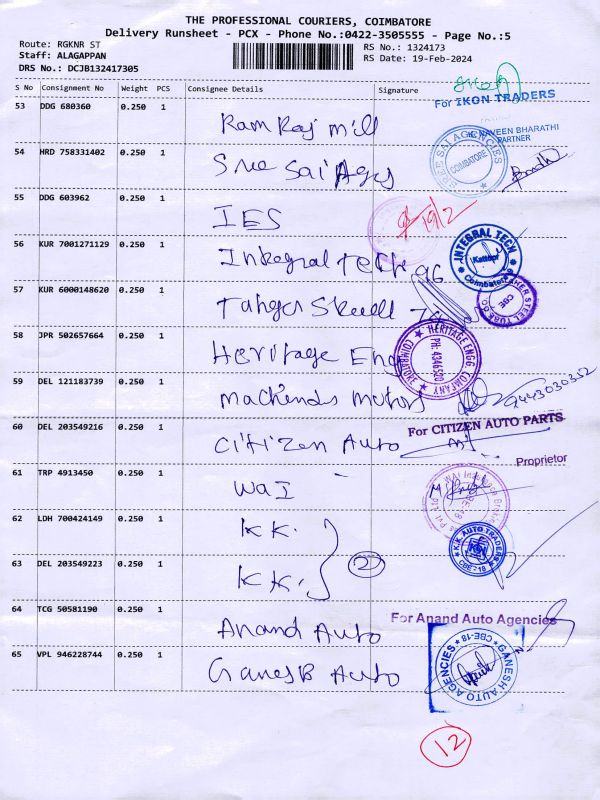 THE PROFESSIONAL COURIERS, COIMBATORE
Delivery Runsheet - PCX - Phone No.:0422-3505555 - Page No.:5
Route: RGKNR ST
RS No.: 1324173
Staff: ALAGAPPAN
RS Date: 19-Feb-2024
DRS No.: DCJB132417305
S No Consignment No Weight PCS Consignee Details Signature
For IKON TRADERS
53 DDG 680360 0.250 1 Ram Raj mill
NAVEEN BHARATHI
PARTNER
54 HRD 758331402 0.250 1 Sree Sai Agys
SREE SAI AGENCIES
COIMBATORE
55 DDG 603962 0.250 1 IES
19/2
56 KUR 7001271129 0.250 1 Integral Tech
INTEGRAL TECH
Coimbatore
57 KUR 6000148620 0.250 1
CBE
58 JPR 502657664 0.250 1 Heritage Eng
HERITAGE ENGG COMPANY
PH: 4346520
COIMBATORE
59 DEL 121183739 0.250 1 motors
9443030352
60 DEL 203549216 0.250 1 Citizen Auto
For CITIZEN AUTO PARTS
Proprietor
61 TRP 4913450 0.250 1 WAI
62 LDH 700424149 0.250 1 K.K.
2
K.K. AUTO TRADERS
CBE-18
63 DEL 203549223 0.250 1 K.K.
64 TCG 50581190 0.250 1 Anand Auto
For Anand Auto Agencies
65 VPL 946228744 0.250 1 Ganesh Auto
GANESH AUTO AGENCIES
CBE-18
12